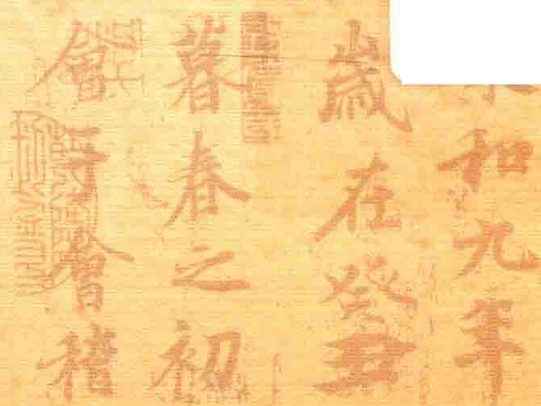 和九年
歲在癸丑
暮春之初
會于會稽